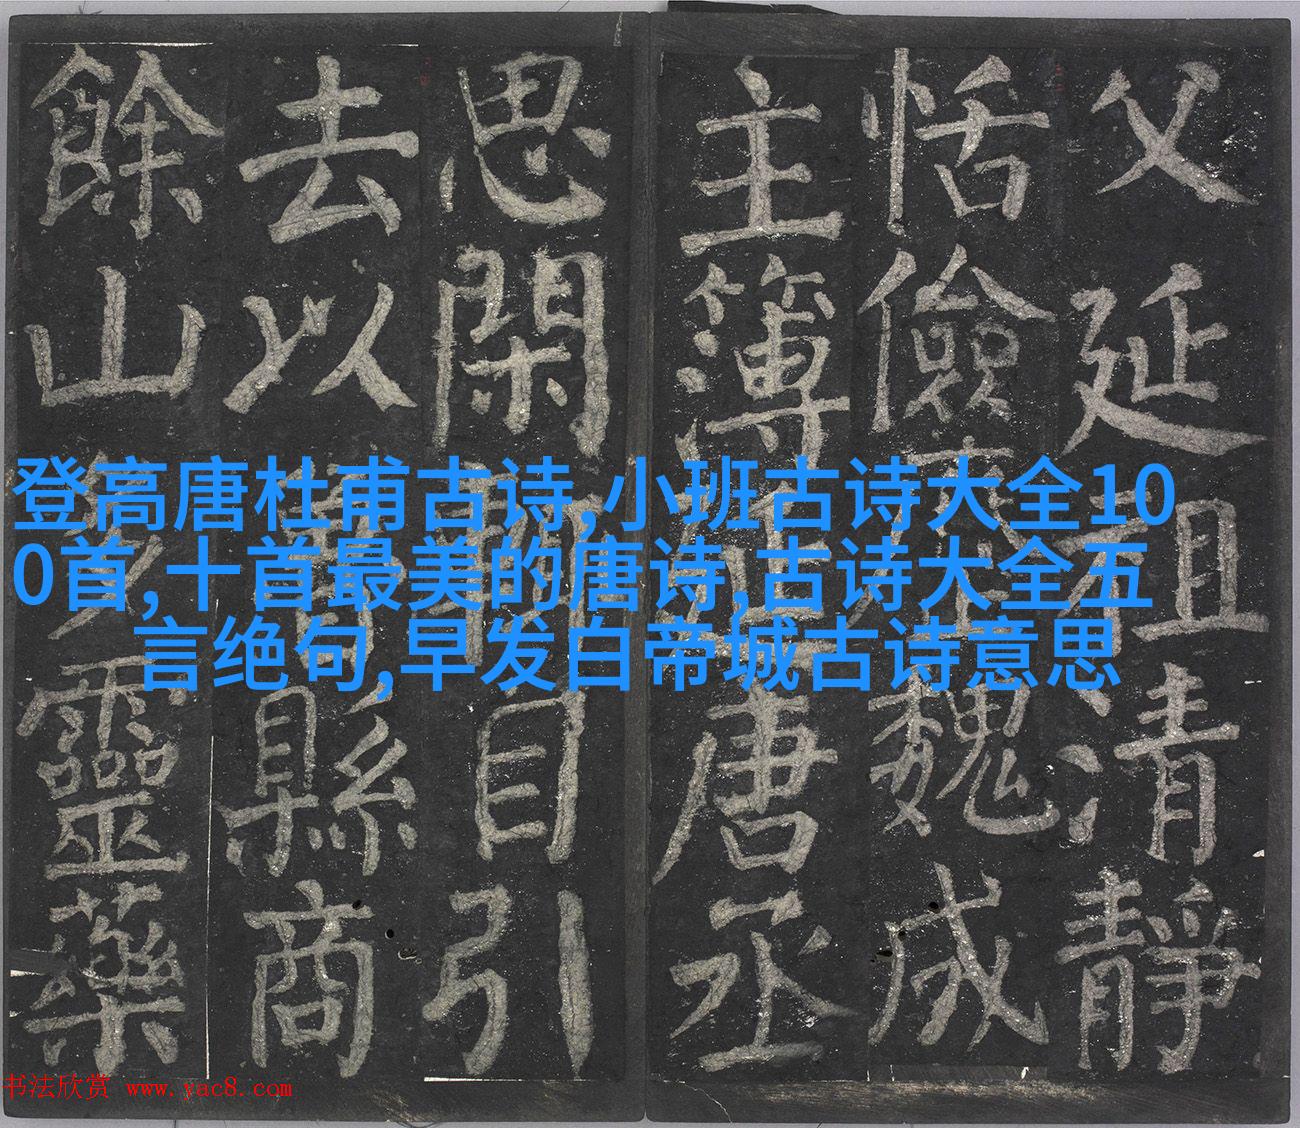 父延祖清靜
恬儉魏成
主簿唐丞
思閑自引
去以縣商
餘山靈藥
登高唐杜甫古诗,小班古诗大全10
0首,十首最美的唐诗,古诗大全五
言绝句,早发白帝城古诗意思
书法欣赏 www.yac8.com